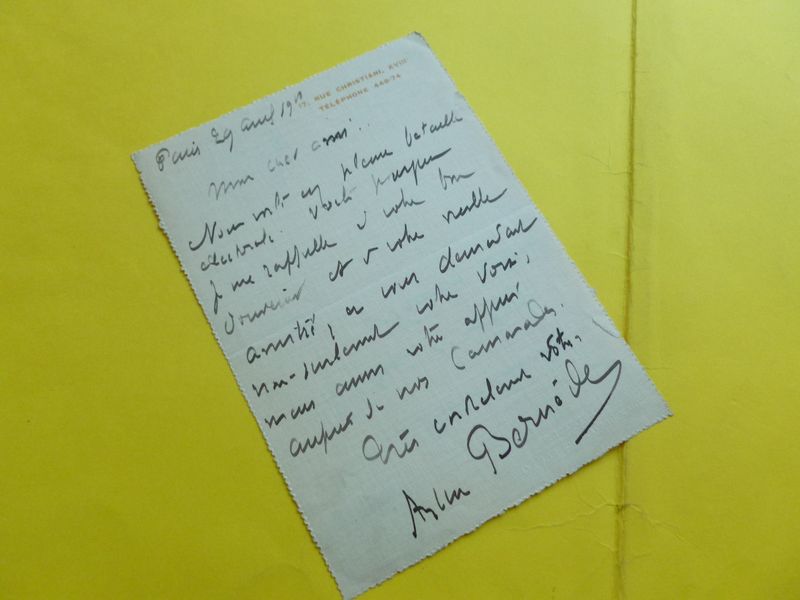 17, RUE CHRISTIANI, XVIII
TÉLÉPHONE 446-74
Paris 29 avril 19
Mon cher ami :
Nous voilà en pleine bataille
électorale. Voilà pourquoi
je me rappelle à votre bon
souvenir et à votre vieille
amitié, en vous demandant
non-seulement votre voix,
mais aussi votre appui
auprès de nos Camarades.
Très cordialement vôtre,
Arthur Bernède